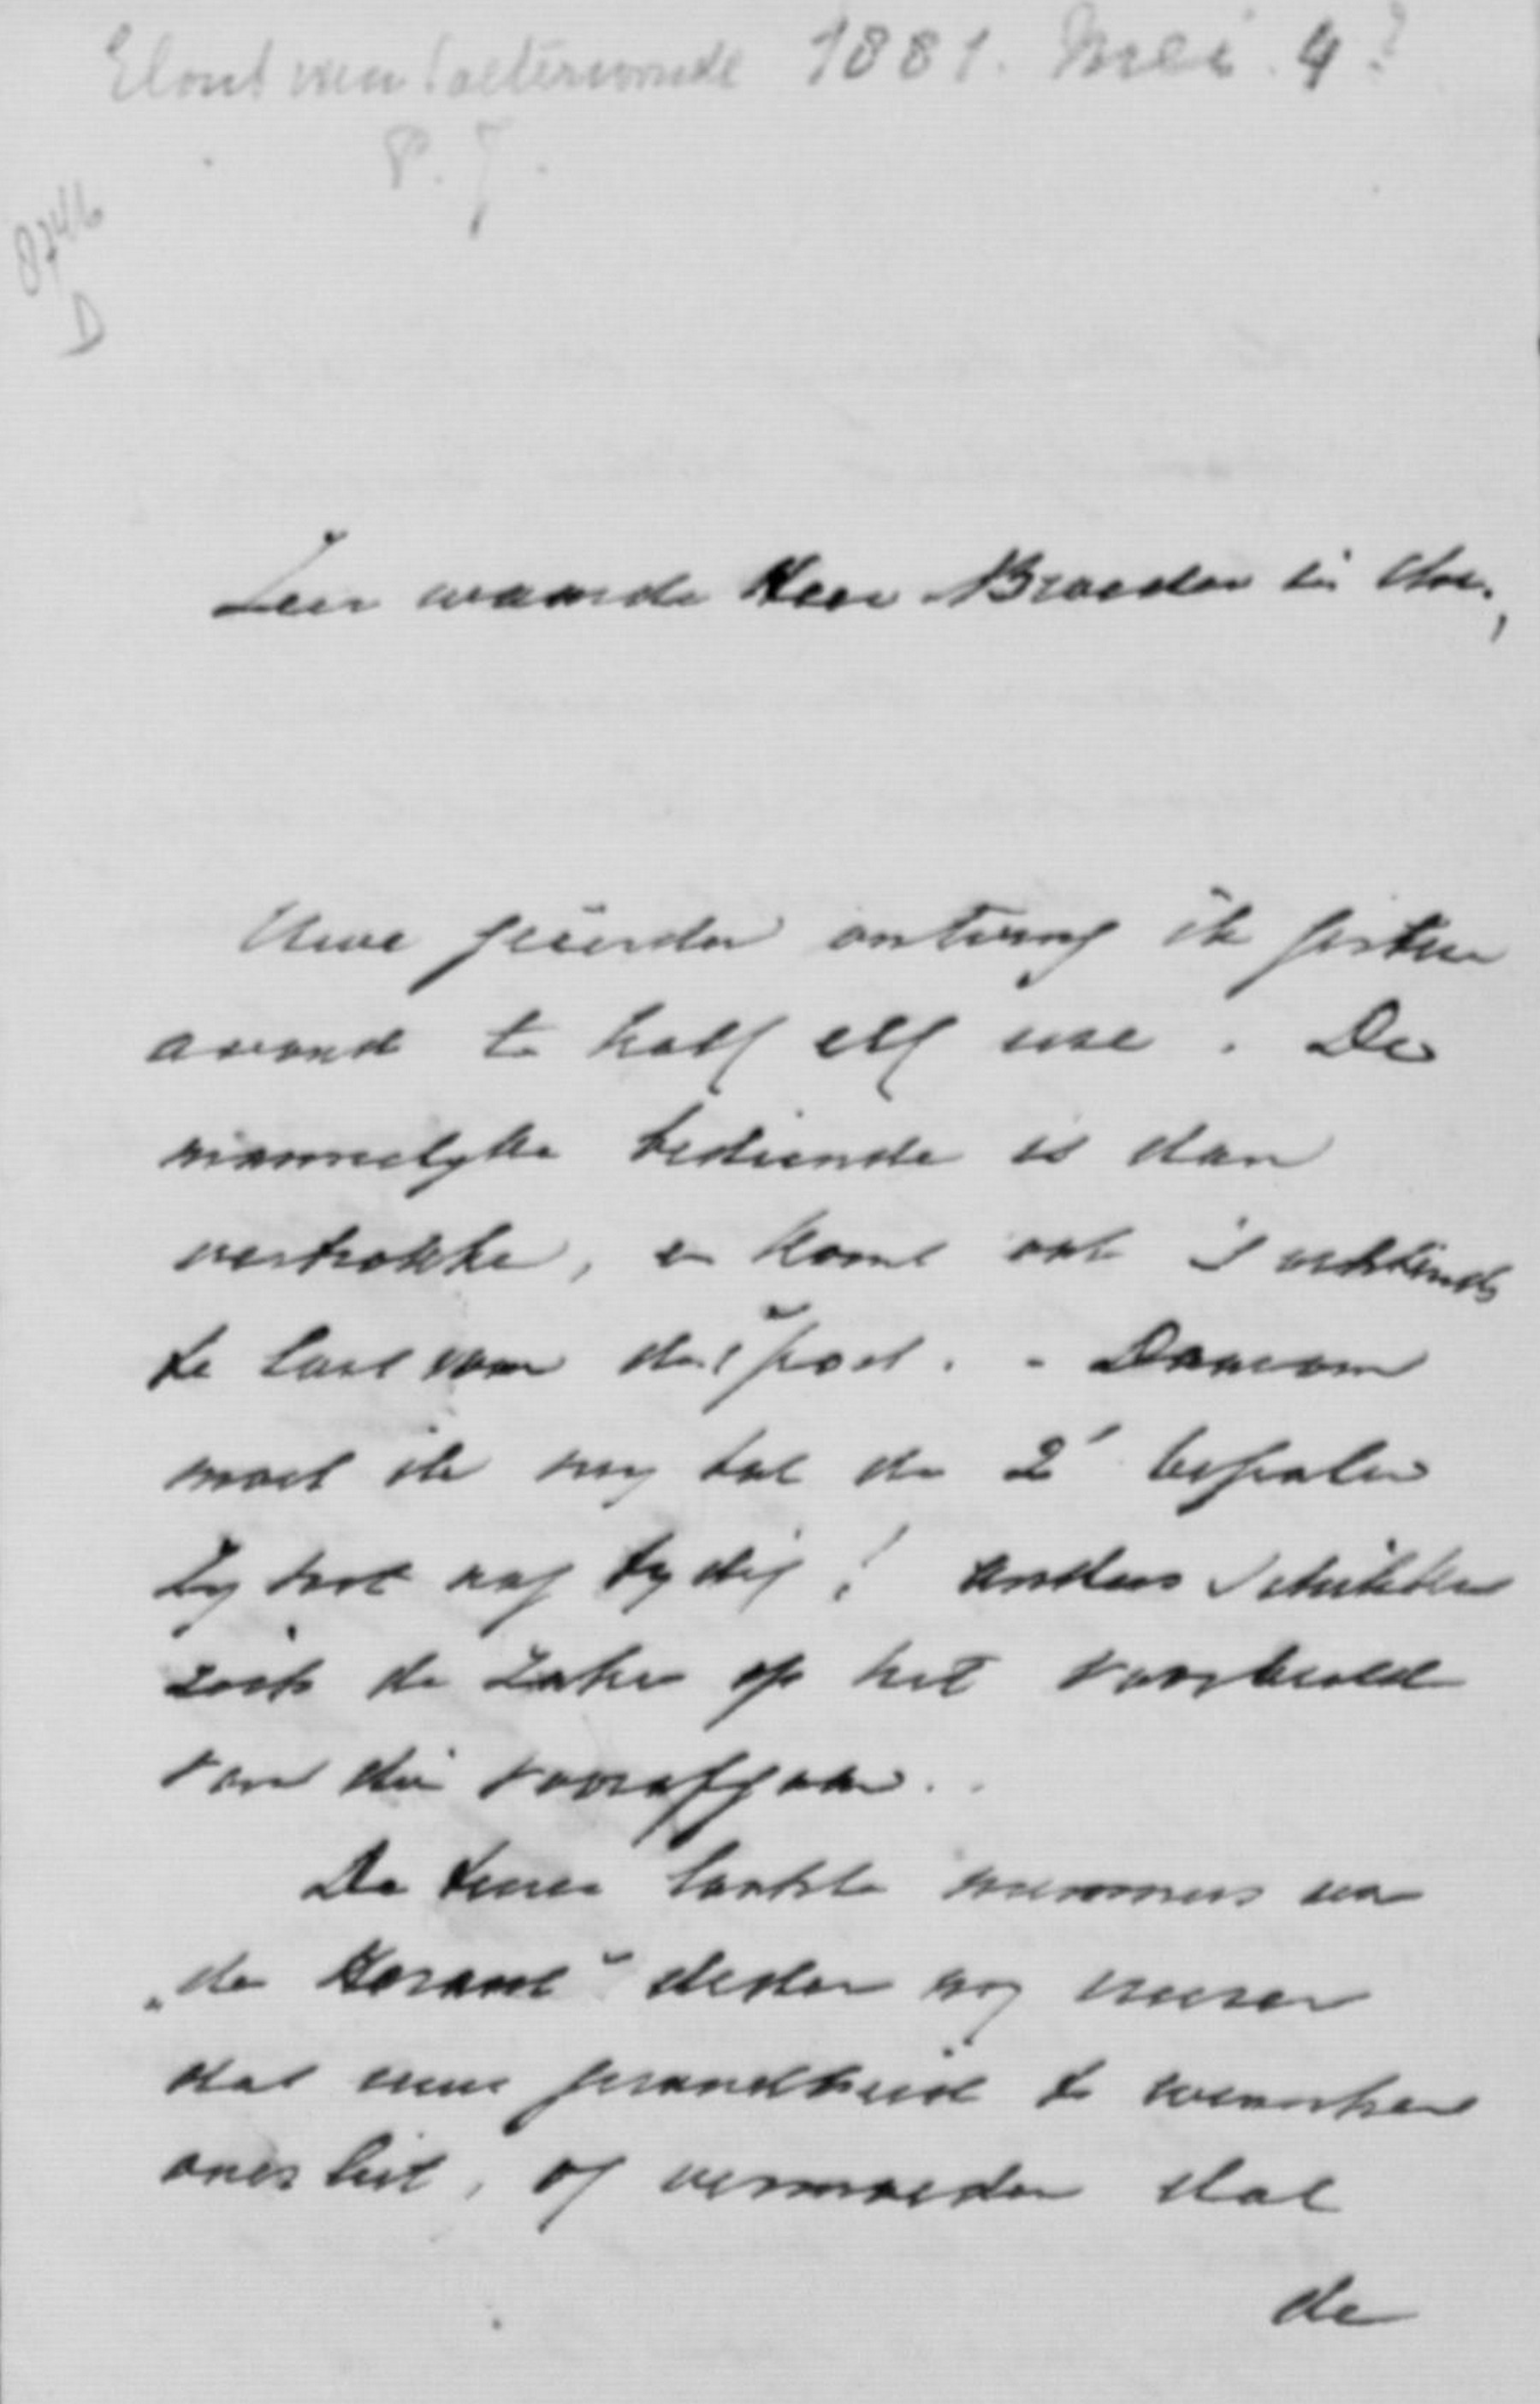 Elout van Soeterwoude 1881. Mei. 4?
P. J.
8246
D
Zeer waarde Heer Broeder in Chr.,
Uwe geëerde ontving ik gister
avond te half elf ure. De
mannelyke bediende is dan
vertrokke, en komt ook 's uchtends
te laat voor de post. - Daarom
moet ik my tot de 2e bepalen
Zy het nog tydig! anders schikken
zich de zaken op het voorbeeld
van die voorafgaan.
De twee laatste nummers van
"de Heraut" deden my vreezen
dat uwe gezondheid te wenschen
overliet, of vermoeden dat
de